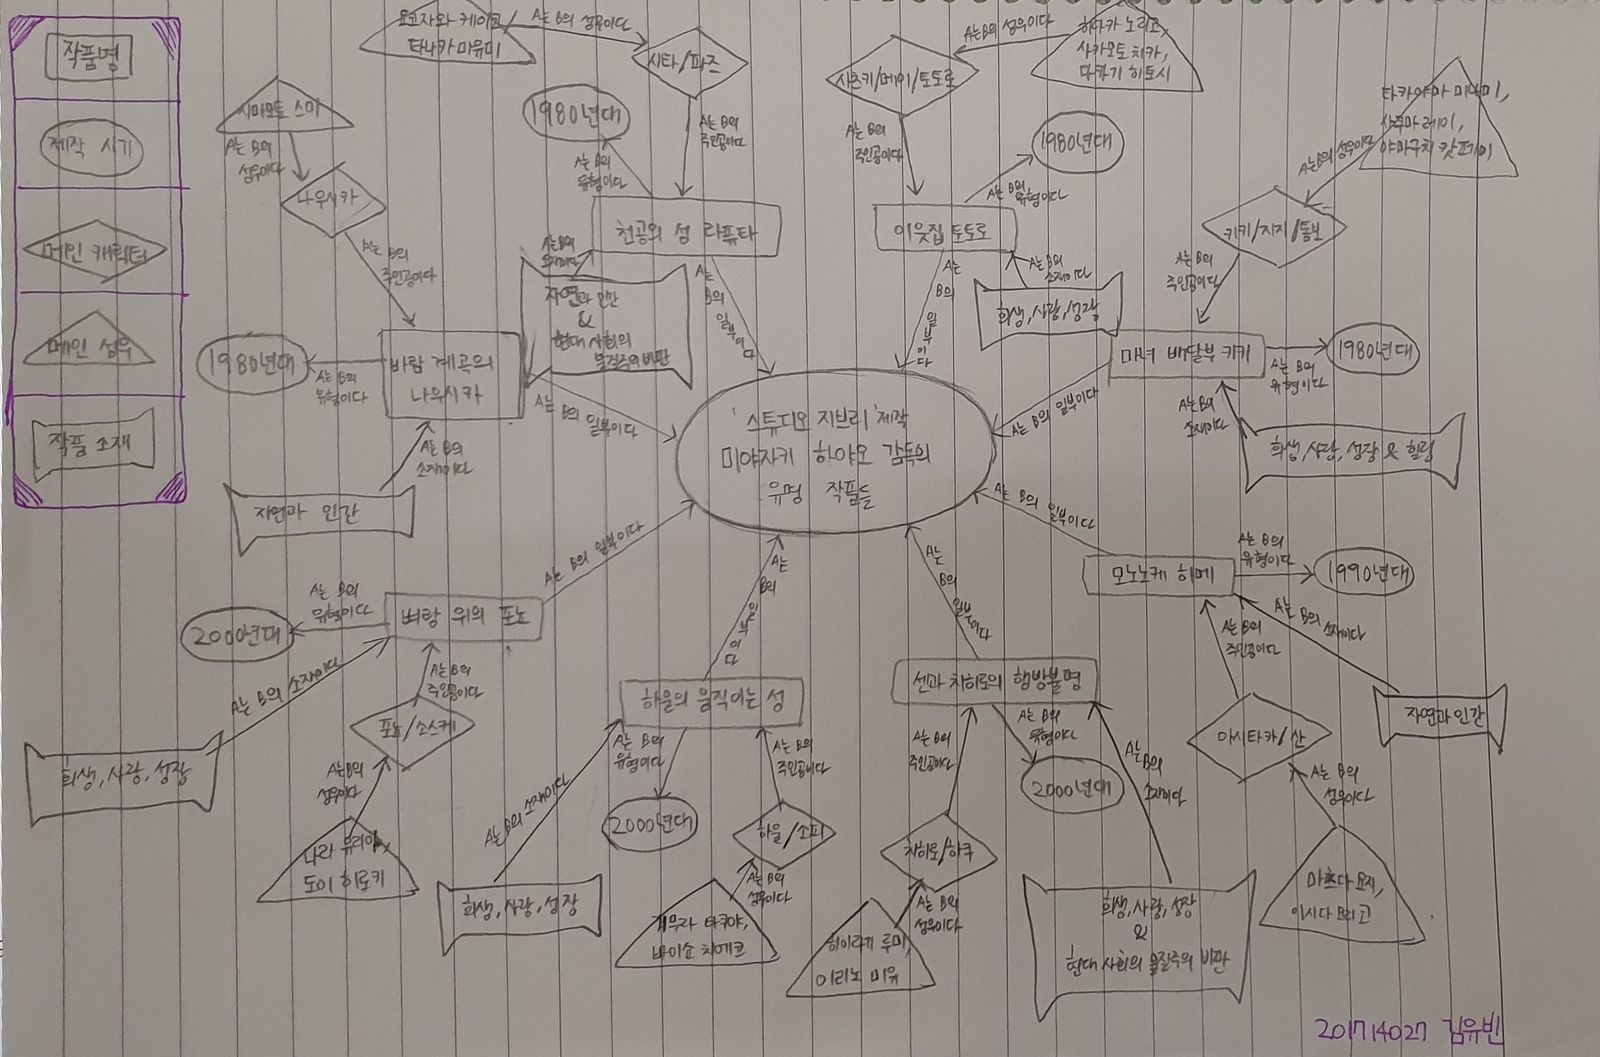 작품명
제작 시기
메인 캐릭터
메인 성우
작품 소재
요코자와 케이코,
타나카 마유미
A는 B의 성우이다
시타/파즈
A는 B의
주인공이다
1980년대
A는 B의
유형이다
천공의 성 라퓨타
A는 B의
소재이다
자연과 인간
&
현대 사회의
물질주의 비판
A는
B의
일부이다
히다카 노리코,
사카모토 치카,
타카기 히토시
A는 B의 성우이다
사츠키/메이/토토로
A는 B의
주인공이다
1980년대
A는 B의
유형이다
이웃집 토토로
A는 B의
소재이다
희생, 사랑, 성장
A는
B의
일부이다
시마모토 스미
A는 B의
성우이다
나우시카
A는 B의
주인공이다
1980년대
A는 B의
유형이다
바람 계곡의
나우시카
A는 B의 일부이다
A는 B의
소재이다
자연과 인간
타카야마 미나미,
사쿠마 레이,
야마구치 캇페이
A는 B의 성우이다
키키/지지/톰보
A는 B의
주인공이다
마녀 배달부 키키
A는 B의
유형이다
1980년대
A는 B의 일부이다
A는 B의
소재이다
희생, 사랑, 성장 & 힐링
'스튜디오 지브리' 제작
미야자키 하야오 감독의
유명 작품들
벼랑 위의 포뇨
A는 B의 일부이다
A는 B의
유형이다
2000년대
A는 B의 소재이다
희생, 사랑, 성장
A는 B의
주인공이다
포뇨/소스케
A는 B의
성우이다
나라 유리아,
도이 히로키
하울의 움직이는 성
A는
B의
일부이다
A는 B의
유형이다
2000년대
A는 B의 소재이다
희생, 사랑, 성장
A는 B의
주인공이다
하울/소피
A는 B의
성우이다
기무라 타쿠야,
바이쇼 치에코
센과 치히로의 행방불명
A는
B의
일부이다
A는 B의
유형이다
2000년대
A는 B의
주인공이다
치히로/하쿠
A는 B의
성우이다
히이라기 루미,
이리노 미유
A는
B의
소재이다
희생, 사랑, 성장
&
현대 사회의 물질주의 비판
모노노케 히메
A는 B의 일부이다
A는 B의
유형이다
1990년대
A는 B의 소재이다
자연과 인간
A는 B의
주인공이다
아시타카/산
A는 B의
성우이다
마츠다 요지,
이시다 유리코
201714027 김유빈